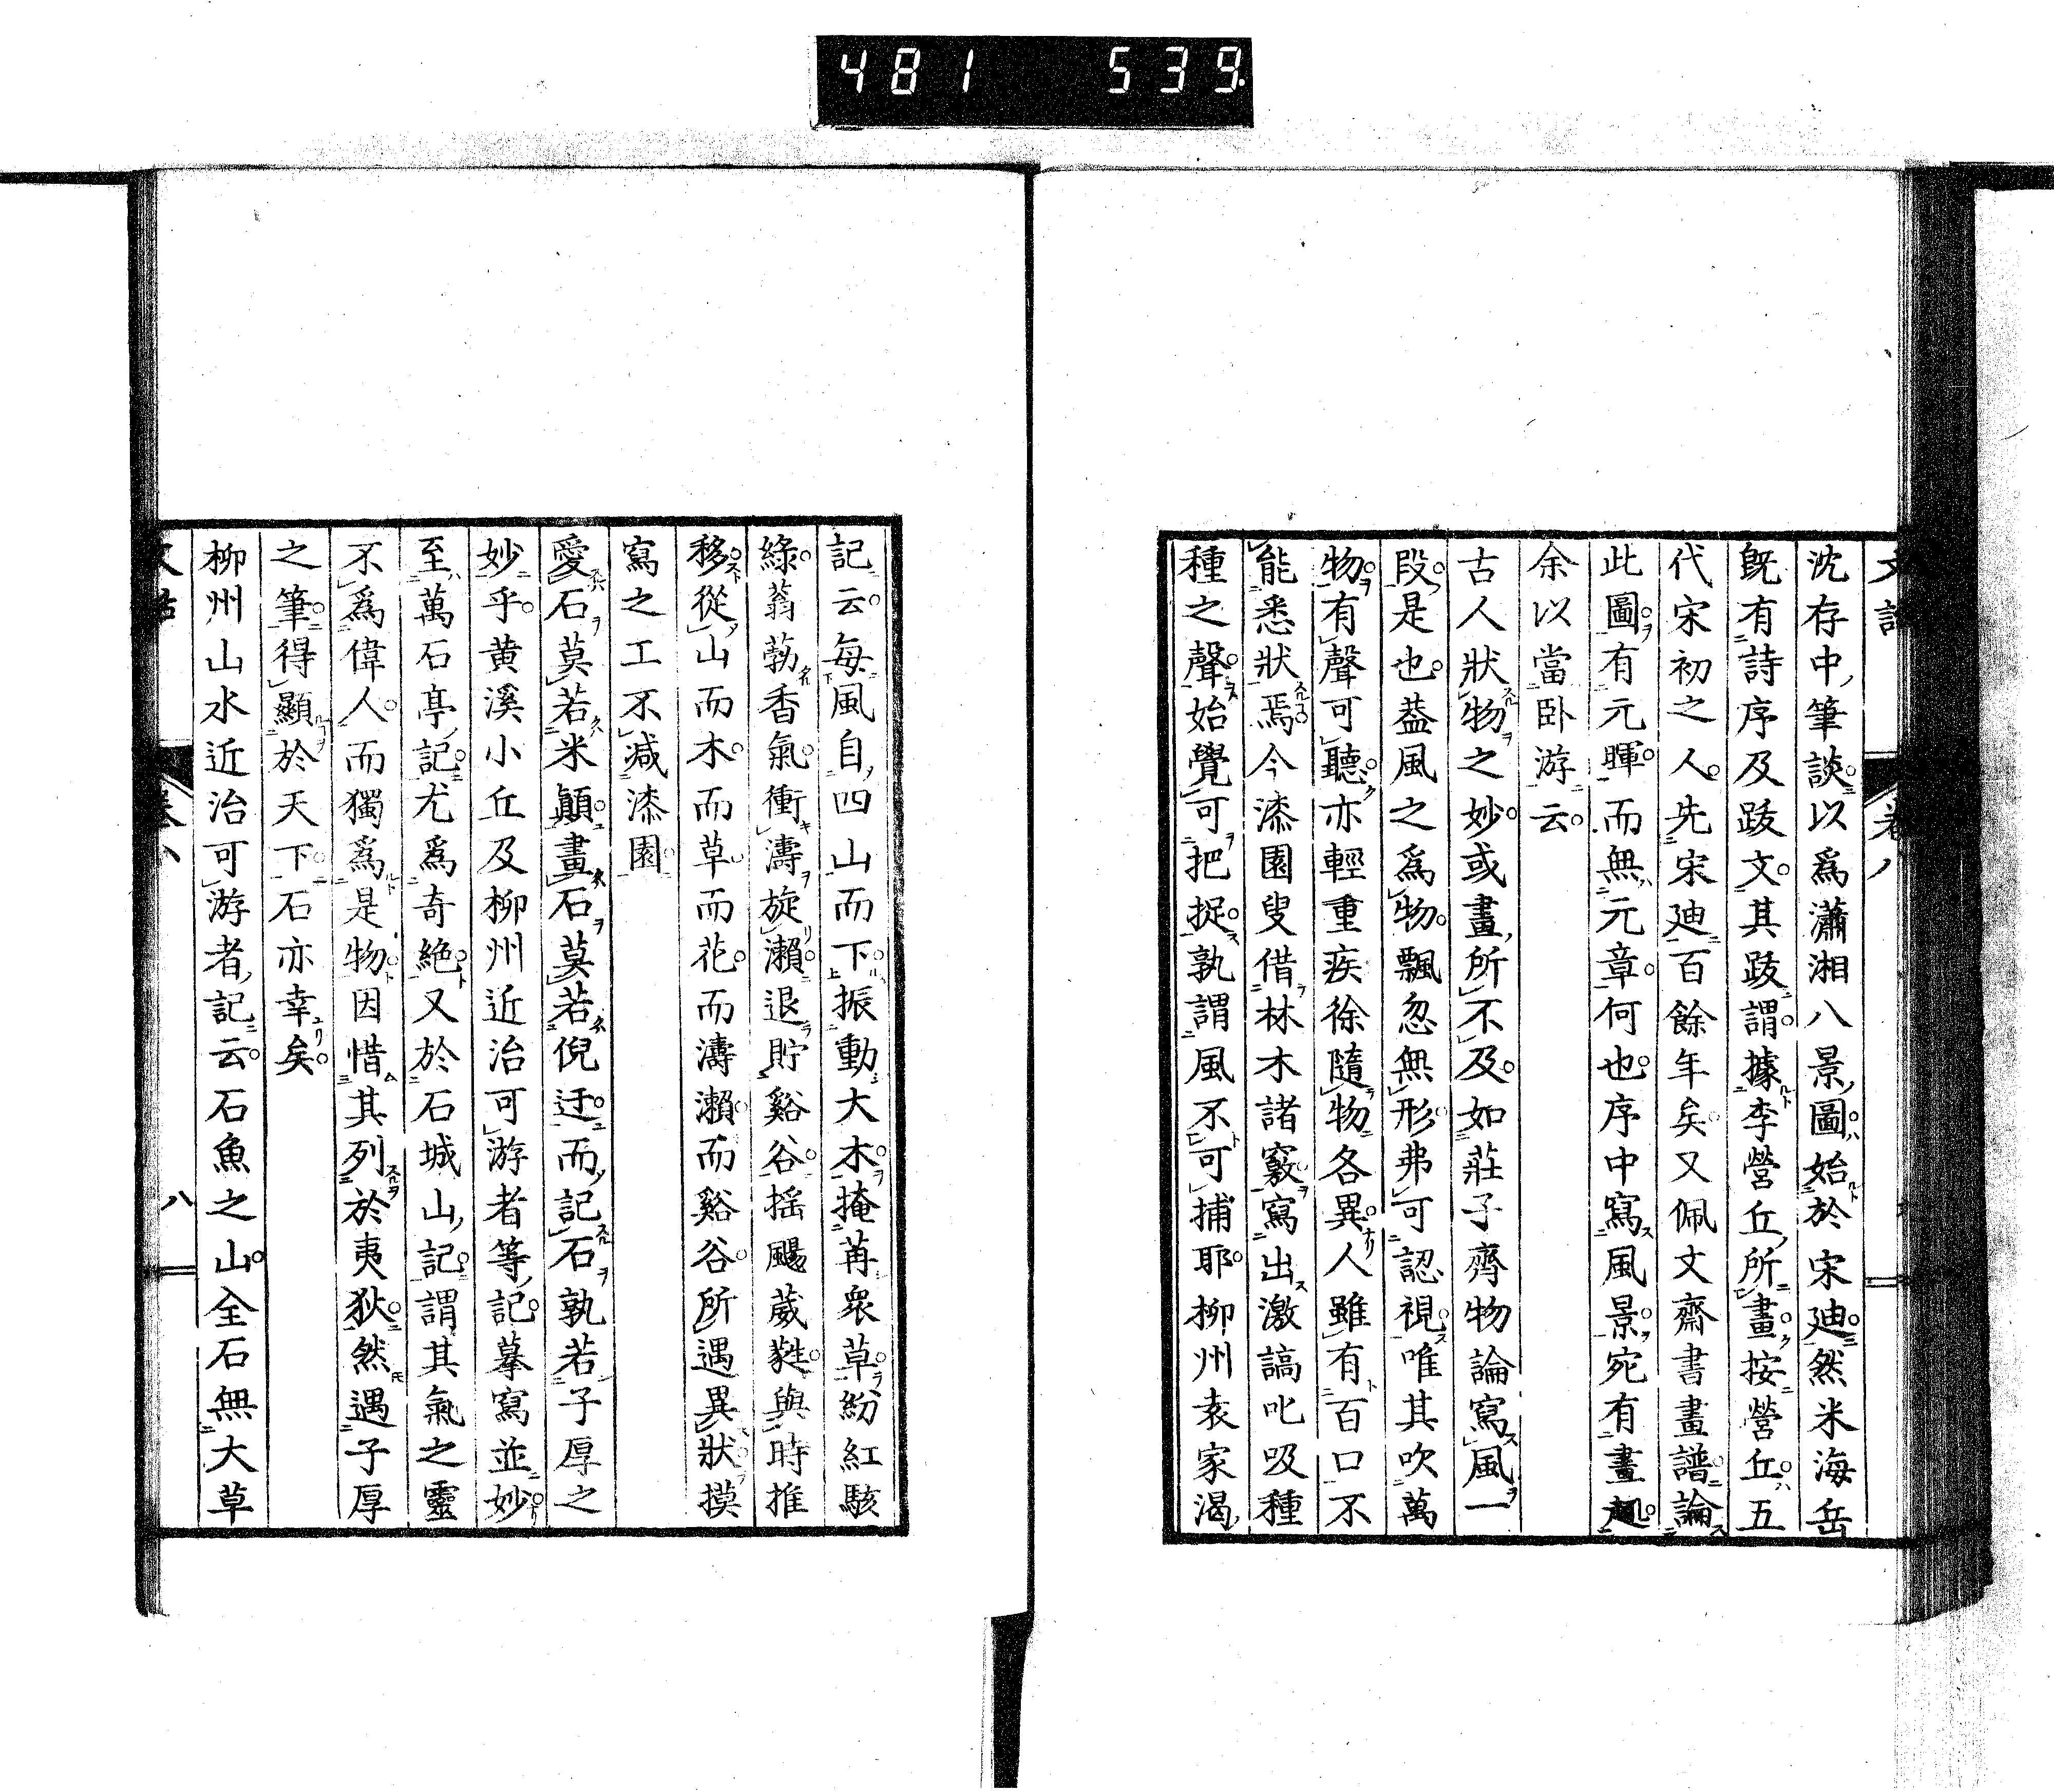 481 539
文話 卷八
沈存中筆談以爲瀟湘八景圖始於宋廸然米海岳
既有詩序及跋文其跋謂據李營丘所畫按營丘五
代宋初之人先宋廸百餘年矣又佩文齋書畫譜論
此圖有元暉而無元章何也序中寫風景宛有畫趣
余以當臥游云
古人狀物之妙或畫所不及如莊子齊物論寫風一
段是也葢風之爲物飄忽無形弗可認視唯其吹萬
物有聲可聽亦輕重疾徐隨物各異人雖有百口不
能悉狀焉今漆園叟借林木諸竅寫出激謞叱吸種
種之聲始覺可把捉孰謂風不可捕耶柳州袁家渴
記云每風自四山而下振動大木掩苒衆草紛紅駭
綠蓊葧香氣衝濤旋瀨退貯谿谷搖颺葳蕤與時推
移從山而木而草而花而濤瀨而谿谷所遇異狀摸
寫之工不減漆園
愛石莫若米顛畫石莫若倪迂而記石孰若子厚之
妙乎黄溪小丘及柳州近治可游者等記摹寫並妙
至萬石亭記尤爲奇絶又於石城山記謂其氣之靈
不爲偉人而獨爲是物因惜其列於夷狄然遇子厚
之筆得顯於天下石亦幸矣
柳州山水近治可游者記云石魚之山全石無大草
八